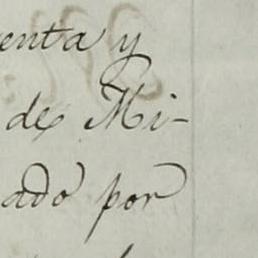 enta y
de Mi-
ado por